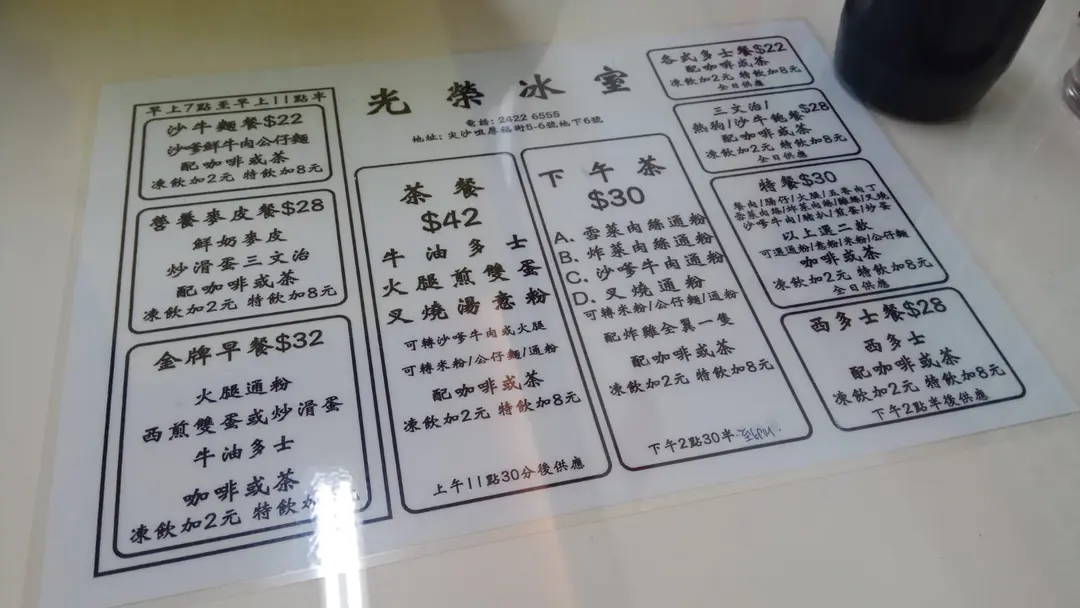 光榮冰室
電話: 2422 6555
地址: 尖沙咀厚福街5-6號地下6號
早上7點至早上11點半
沙牛麵餐$22
沙嗲鮮牛肉公仔麵
配咖啡或茶
凍飲加2元 特飲加8元
營養麥皮餐$28
鮮奶麥皮
炒滑蛋三文治
配咖啡或茶
凍飲加2元 特飲加8元
金牌早餐$32
火腿通粉
西煎雙蛋或炒滑蛋
牛油多士
咖啡或茶
凍飲加2元 特飲加
茶餐
$42
牛油多士
火腿煎雙蛋
叉燒湯意粉
可轉沙嗲牛肉或火腿
可轉米粉/公仔麵/通粉
配咖啡或茶
凍飲加2元 特飲加8元
上午11點30分後供應
下午茶
$30
A. 雪菜肉絲通粉
B. 炸菜肉絲通粉
C. 沙嗲牛肉通粉
D. 叉燒通粉
可轉米粉/公仔麵/通粉
配炸雞全翼一隻
配咖啡或茶
凍飲加2元 特飲加8元
下午2點30半
各式多士餐$22
配咖啡或茶
凍飲加2元 特飲加8元
全日供應
三文治/
熱狗/沙牛飽餐$28
配咖啡或茶
凍飲加2元 特飲加8元
全日供應
特餐$30
餐肉/腸仔/火腿/五香肉丁
雪菜肉絲/炸菜肉絲/雞翼/叉燒
沙嗲牛肉/豬扒/煎蛋/炒蛋
以上選二款
可選通粉/意粉/米粉/公仔麵
咖啡或茶
凍飲加2元 特飲加8元
全日供應
西多士餐$28
西多士
配咖啡或茶
凍飲加2元 特飲加8元
下午2點半後供應